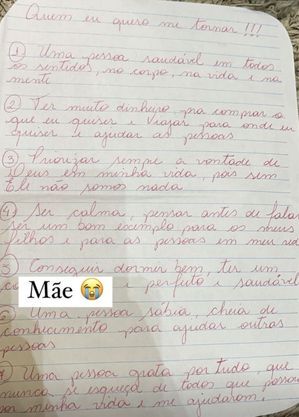 Quem eu quero me tornar!!!
① Uma pessoa saudável em todos
os sentidos, no corpo, na vida e na
mente
② Ter muito dinheiro pra comprar o
que eu quiser e viajar para onde eu
quiser e ajudar as pessoas
③ Priorizar sempre a vontade de
Deus em minha vida, pois sem
Ele não somos nada
④ Ser calma, pensar antes de falar
ser um bom exemplo para os meus
filhos e para as pessoas em meu
⑤ Conseguir dormir bem, ter um
e perfeito e saudável
Mãe 😭
Uma pessoa sábia, cheia de
conhecimento para ajudar outras
pessoas
Uma pessoa grata por tudo, que
nunca se esqueça de todos que
por minha vida e me ajudaram.